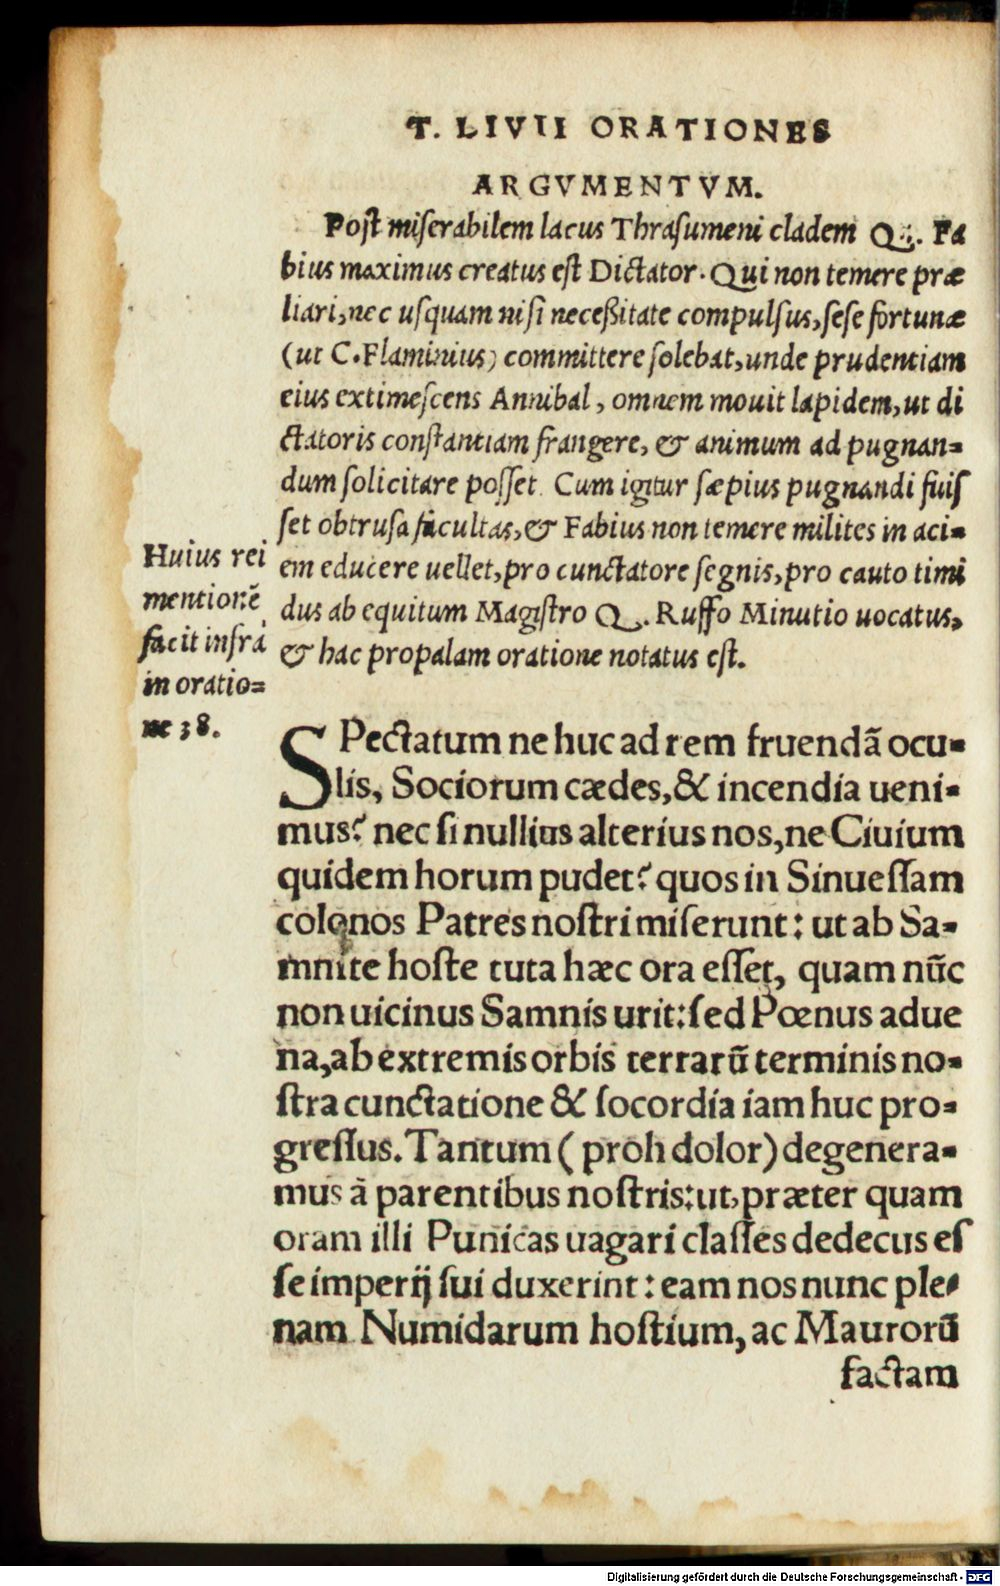 T. LIVII ORATIONES
ARGVMENTVM.
Post miserabilem lacus Thrasumeni cladem Q. Fa
bius maximus creatus est Dictator. Qui non temere præ
liari, nec usquam nisi neceßitate compulsus, sese fortunæ
(ut C. Flaminius) committere solebat, unde prudentiam
eius extimescens Annibal, omnem mouit lapidem, ut di
ctatoris constantiam frangere, & animum ad pugnan=
dum solicitare posset. Cum igitur sæpius pugnandi fuis
set obtrusa facultas, & Fabius non temere milites in aci=
em educere uellet, pro cunctatore segnis, pro cauto timi
dus ab equitum Magistro Q. Ruffo Minutio uocatus,
& hac propalam oratione notatus est.
Huius rei
mentionẽ
facit infrà
in oratio=
ne 38.
SPectatum ne huc ad rem fruendã ocu=
lis, Sociorum cædes, & incendia ueni=
mus? nec si nullius alterius nos, ne Ciuium
quidem horum pudet? quos in Sinuessam
colonos Patres nostri miserunt: ut ab Sa=
mnite hoste tuta hæc ora esset, quam nũc
non uicinus Samnis urit: sed Pœnus adue
na, ab extremis orbis terrarũ terminis no=
stra cunctatione & socordia iam huc pro=
gressus. Tantum (proh dolor) degenera=
mus à parentibus nostris: ut, præter quam
oram illi Punicas uagari classes dedecus es
se imperij sui duxerint: eam nos nunc ple=
nam Numidarum hostium, ac Maurorũ
factam
Digitalisierung gefördert durch die Deutsche Forschungsgemeinschaft - DFG